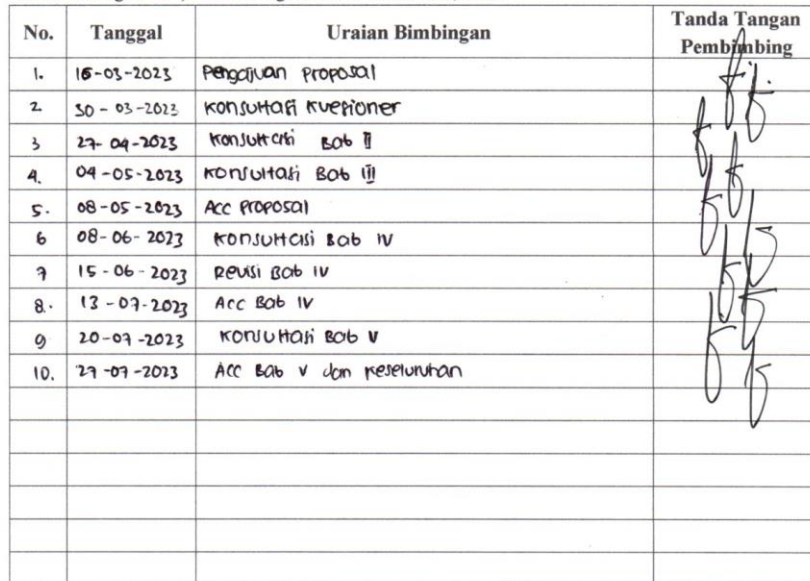 No. Tanggal Uraian Bimbingan Tanda Tangan Pembimbing
1. 16-03-2023 Pengajuan Proposal
2 30-03-2023 Konsultasi Kuesioner
3 27-04-2023 Konsultasi Bab II
4. 04-05-2023 Konsultasi Bab III
5. 08-05-2023 Acc Proposal
6 08-06-2023 Konsultasi Bab IV
7 15-06-2023 Revisi Bab IV
8. 13-07-2023 Acc Bab IV
9 20-07-2023 Konsultasi Bab V
10. 27-07-2023 Acc Bab V dan Keseluruhan